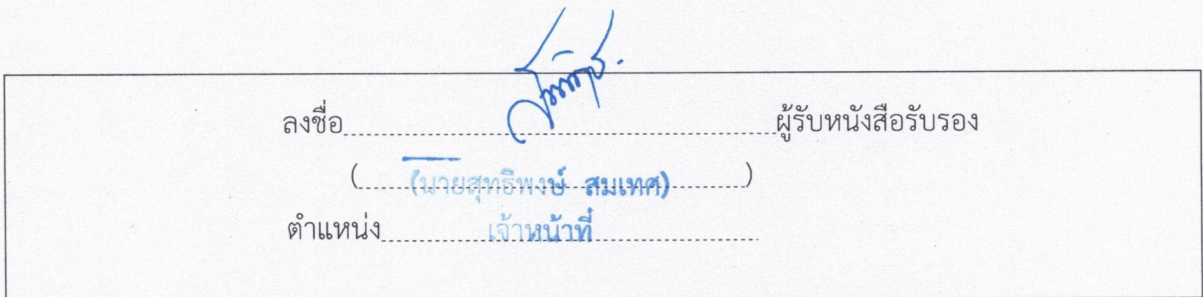 ลงชื่อ ผู้รับหนังสือรับรอง
( (นายสุทธิพงษ์ สมเทศ) )
ตำแหน่ง เจ้าหน้าที่